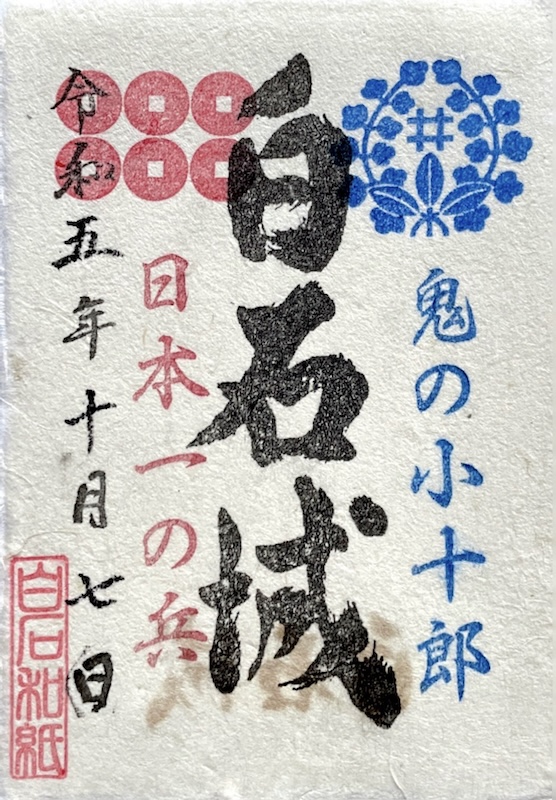 鬼の小十郎
白石城
日本一の兵
令和五年十月七日
白石和紙